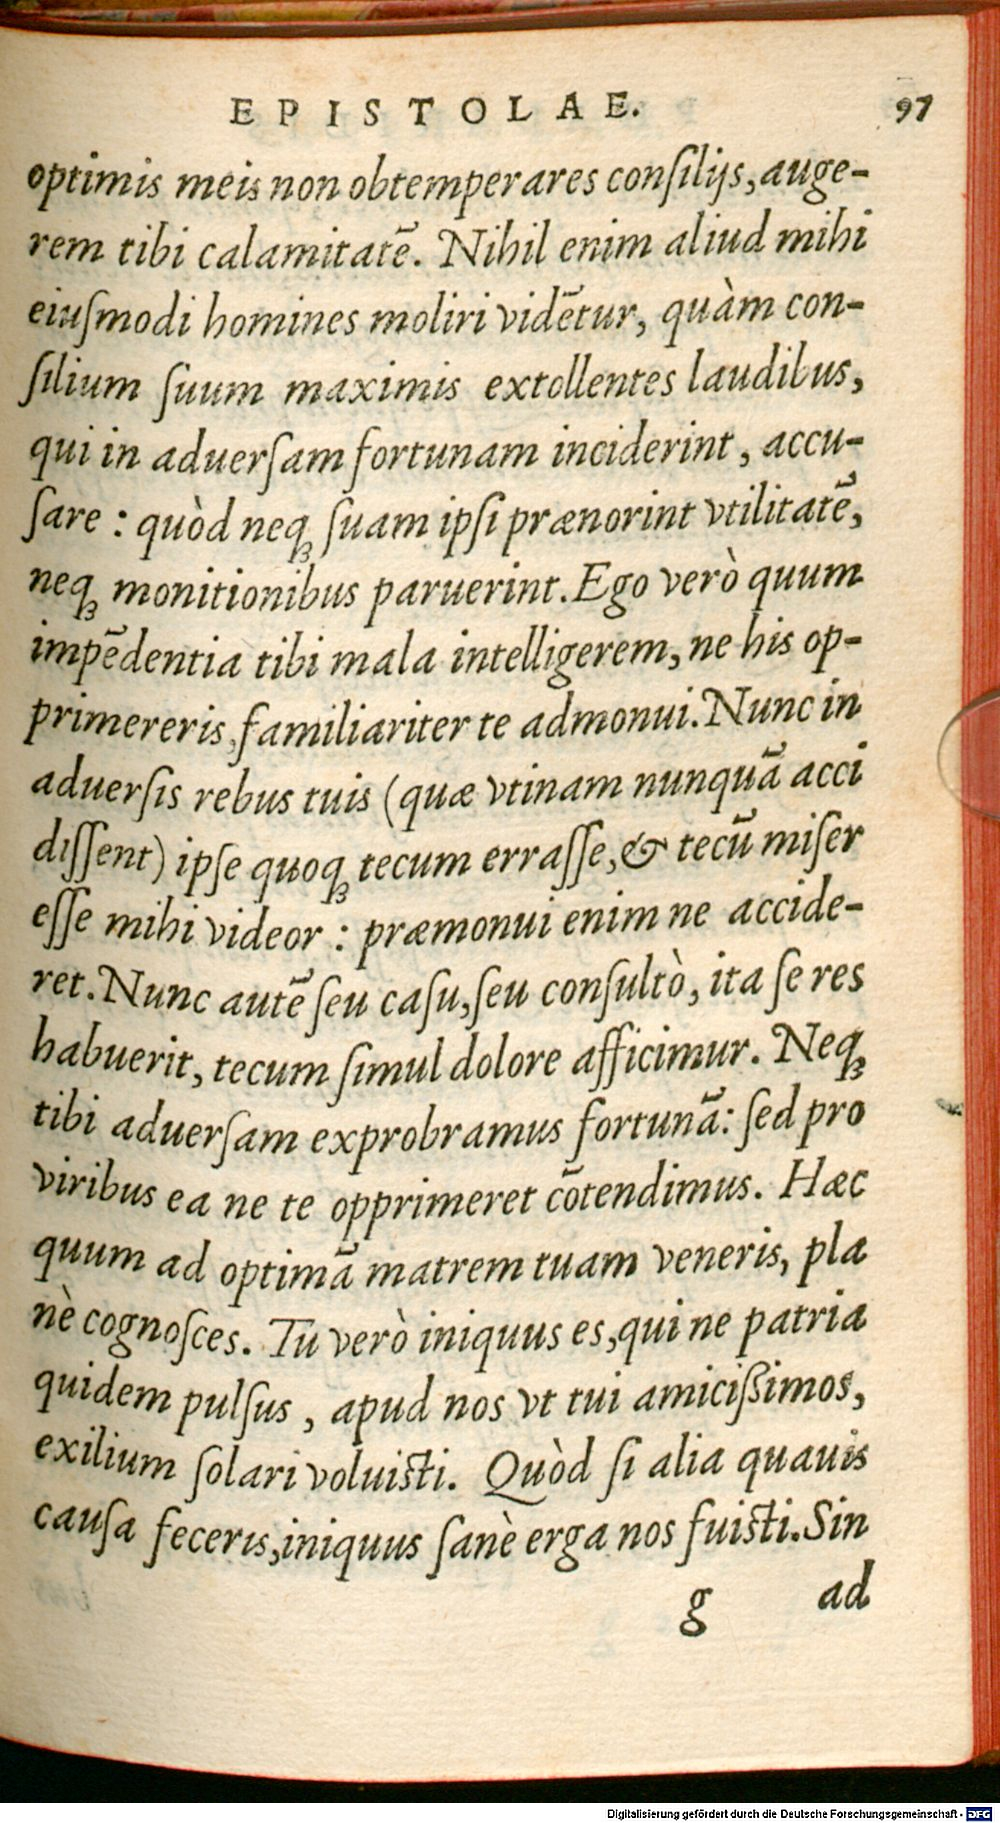 EPISTOLAE. 97
optimis meis non obtemperares conſilijs, auge-
rem tibi calamitatē. Nihil enim aliud mihi
eiuſmodi homines moliri vidētur, quàm con-
ſilium ſuum maximis extollentes laudibus,
qui in aduerſam fortunam inciderint, accu-
ſare : quòd neqꝫ ſuam ipſi prænorint vtilitatē,
neqꝫ monitionibus paruerint. Ego verò quum
impēdentia tibi mala intelligerem, ne his op-
primereris, familiariter te admonui. Nunc in
aduerſis rebus tuis (quæ vtinam nunquā acci
diſſent) ipſe quoqꝫ tecum erraſſe, & tecū miſer
eſſe mihi videor : præmonui enim ne accide-
ret. Nunc autē ſeu caſu, ſeu conſultò, ita ſe res
habuerit, tecum ſimul dolore afficimur. Neqꝫ
tibi aduerſam exprobramus fortunā: ſed pro
viribus ea ne te opprimeret cōtendimus. Hæc
quum ad optimā matrem tuam veneris, pla
nè cognoſces. Tu verò iniquus es, qui ne patria
quidem pulſus , apud nos vt tui amicißimos,
exilium ſolari voluiſti. Quòd ſi alia quauis
cauſa feceris, iniquus ſanè erga nos fuiſti. Sin
g ad
Digitalisierung gefördert durch die Deutsche Forschungsgemeinschaft - DFG